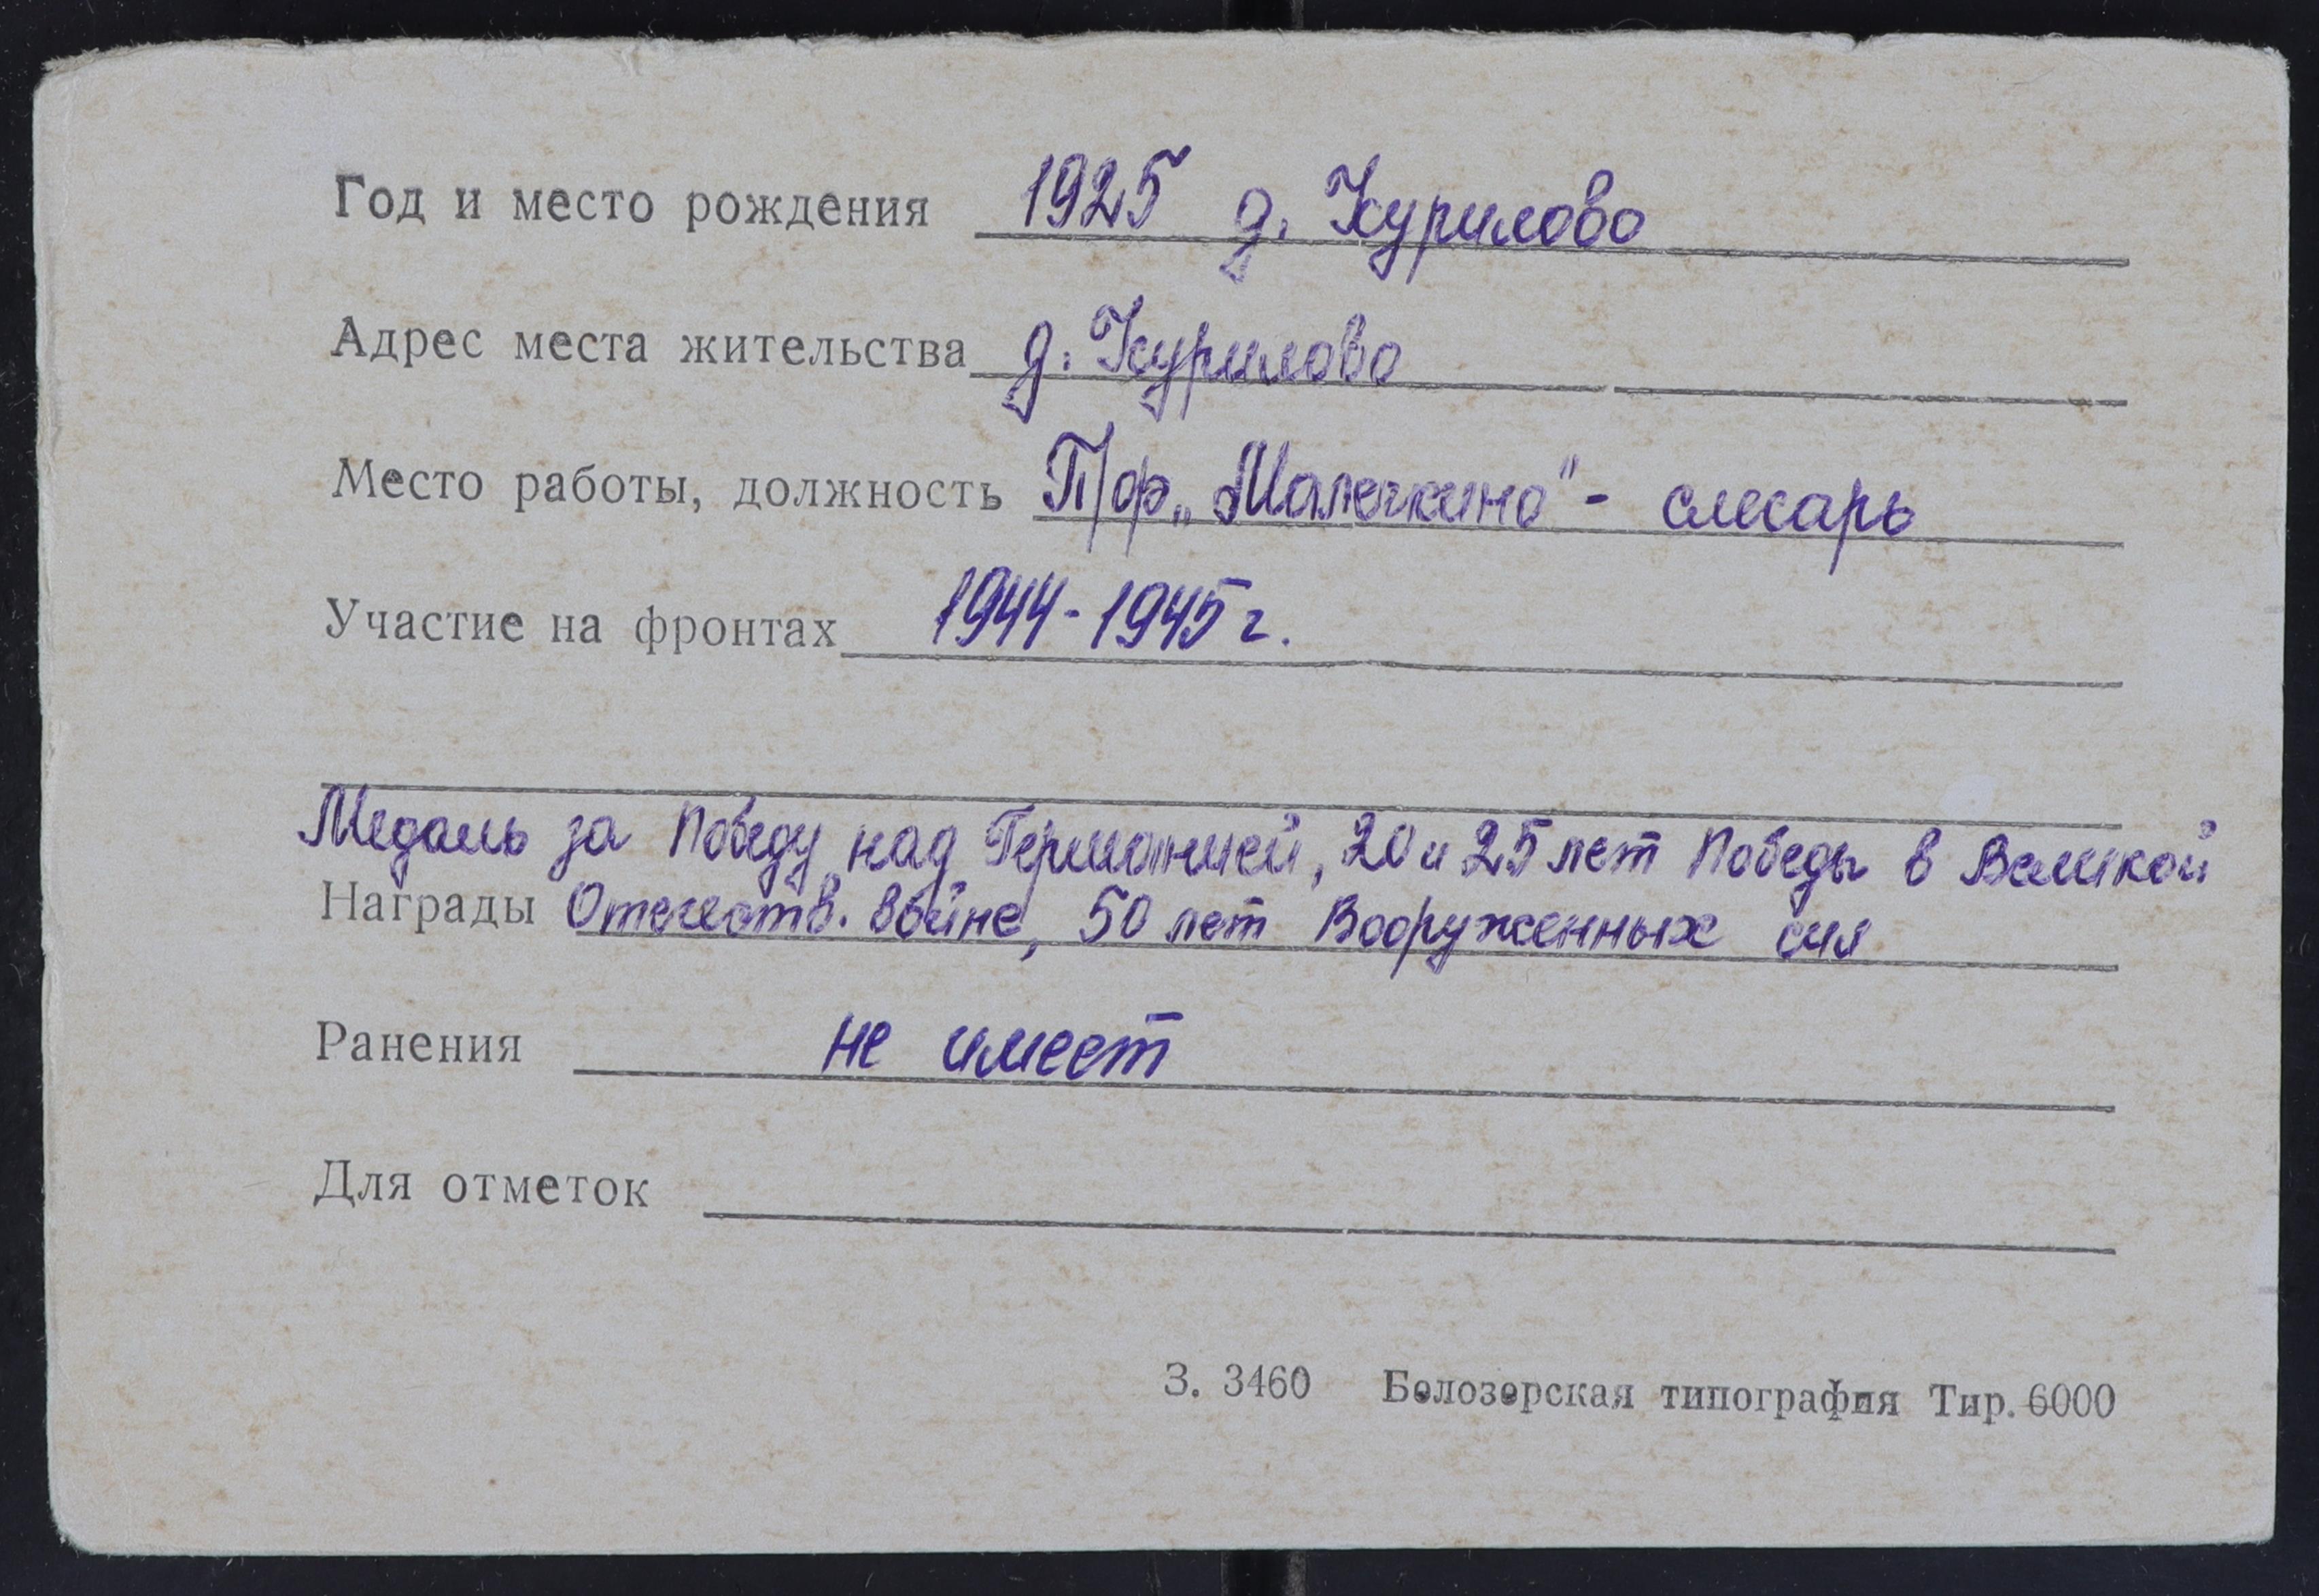 Год и место рождения 1925 д. Курилово
Адрес места жительства д. Курилово
Место работы, должность П/ф „Малечкино" - слесарь
Участие на фронтах 1944-1945 г.
Медаль за Победу над Германией, 20 и 25 лет Победы в Великой
Награды Отечеств. войне, 50 лет Вооруженных сил
Ранения не имеет
Для отметок
З. 3460 Белозерская типография Тир. 6000